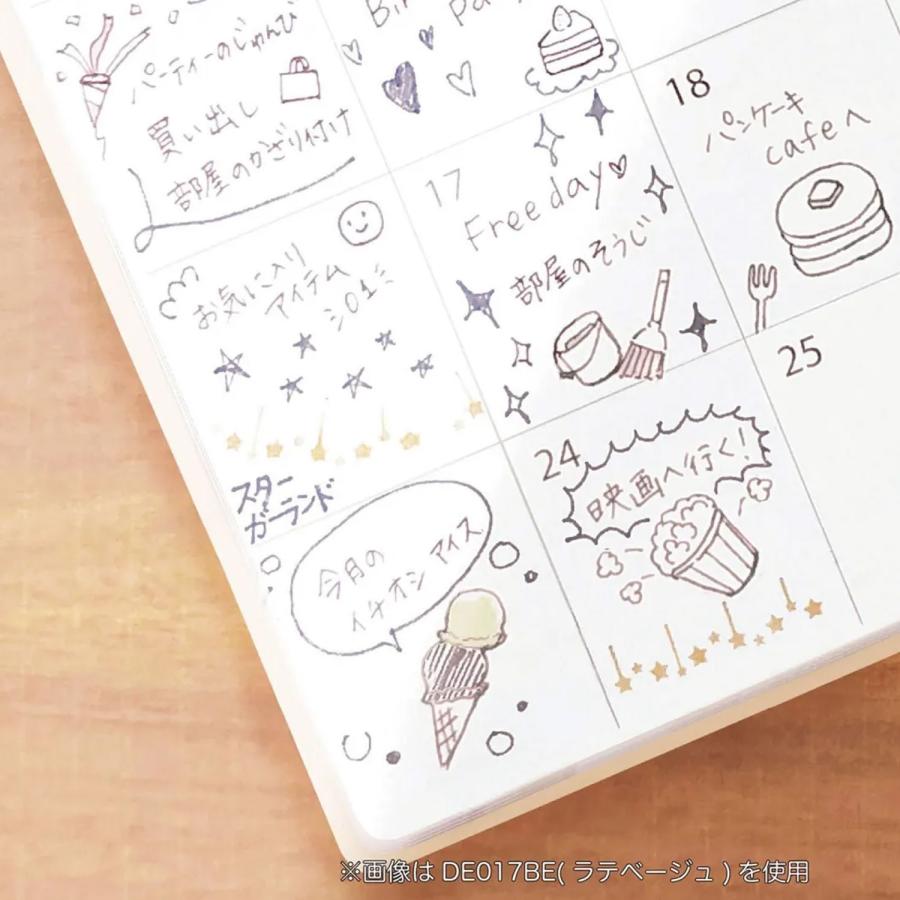 パーティーのじゅんび
買い出し
部屋のかざり付け
お気に入り
アイテム
01
スター
ガーランド
今月の
イチオシ アイス
17
Free day
部屋のそうじ
24
映画へ行く!
18
パンケーキ
cafeへ
25
※画像は DE017BE( ラテベージュ ) を使用